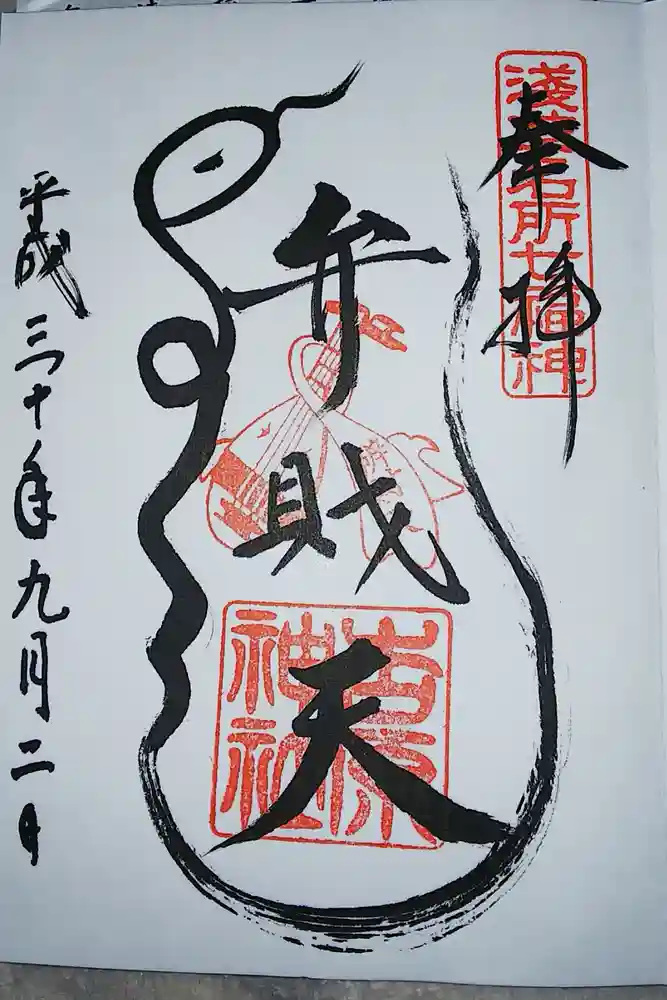 淺草名所七福神
奉拝
弁財天
吉原
神社
平成三十年九月二日